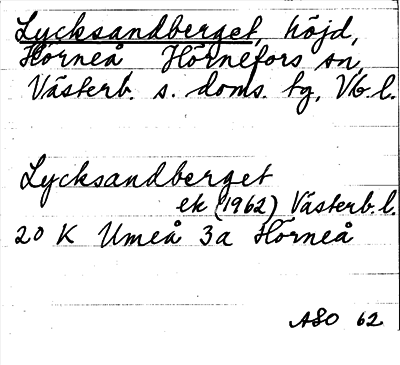 Lycksandberget, höjd,
Hörneå Hörnefors sn,
Västerb. s. doms. tg, Vb. l.
Lycksandberget
ek (1962) Västerb. l.
20 K Umeå 3a Hörneå
ASO 62